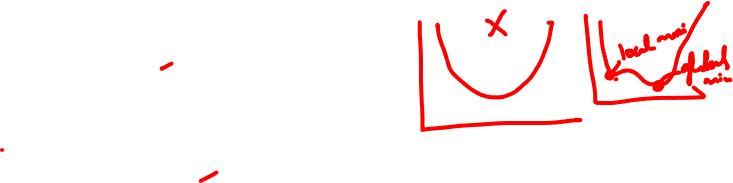 X
local min
global
min